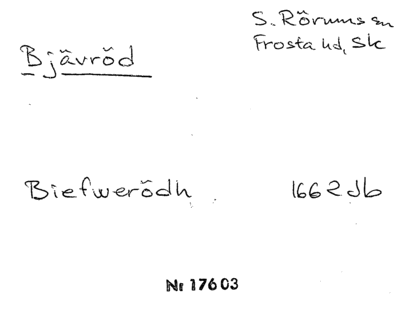 S. Rörums sn
Frosta hd, Sk
Bjävröd
Biefwerödh 1662 Jb
Nr 17603